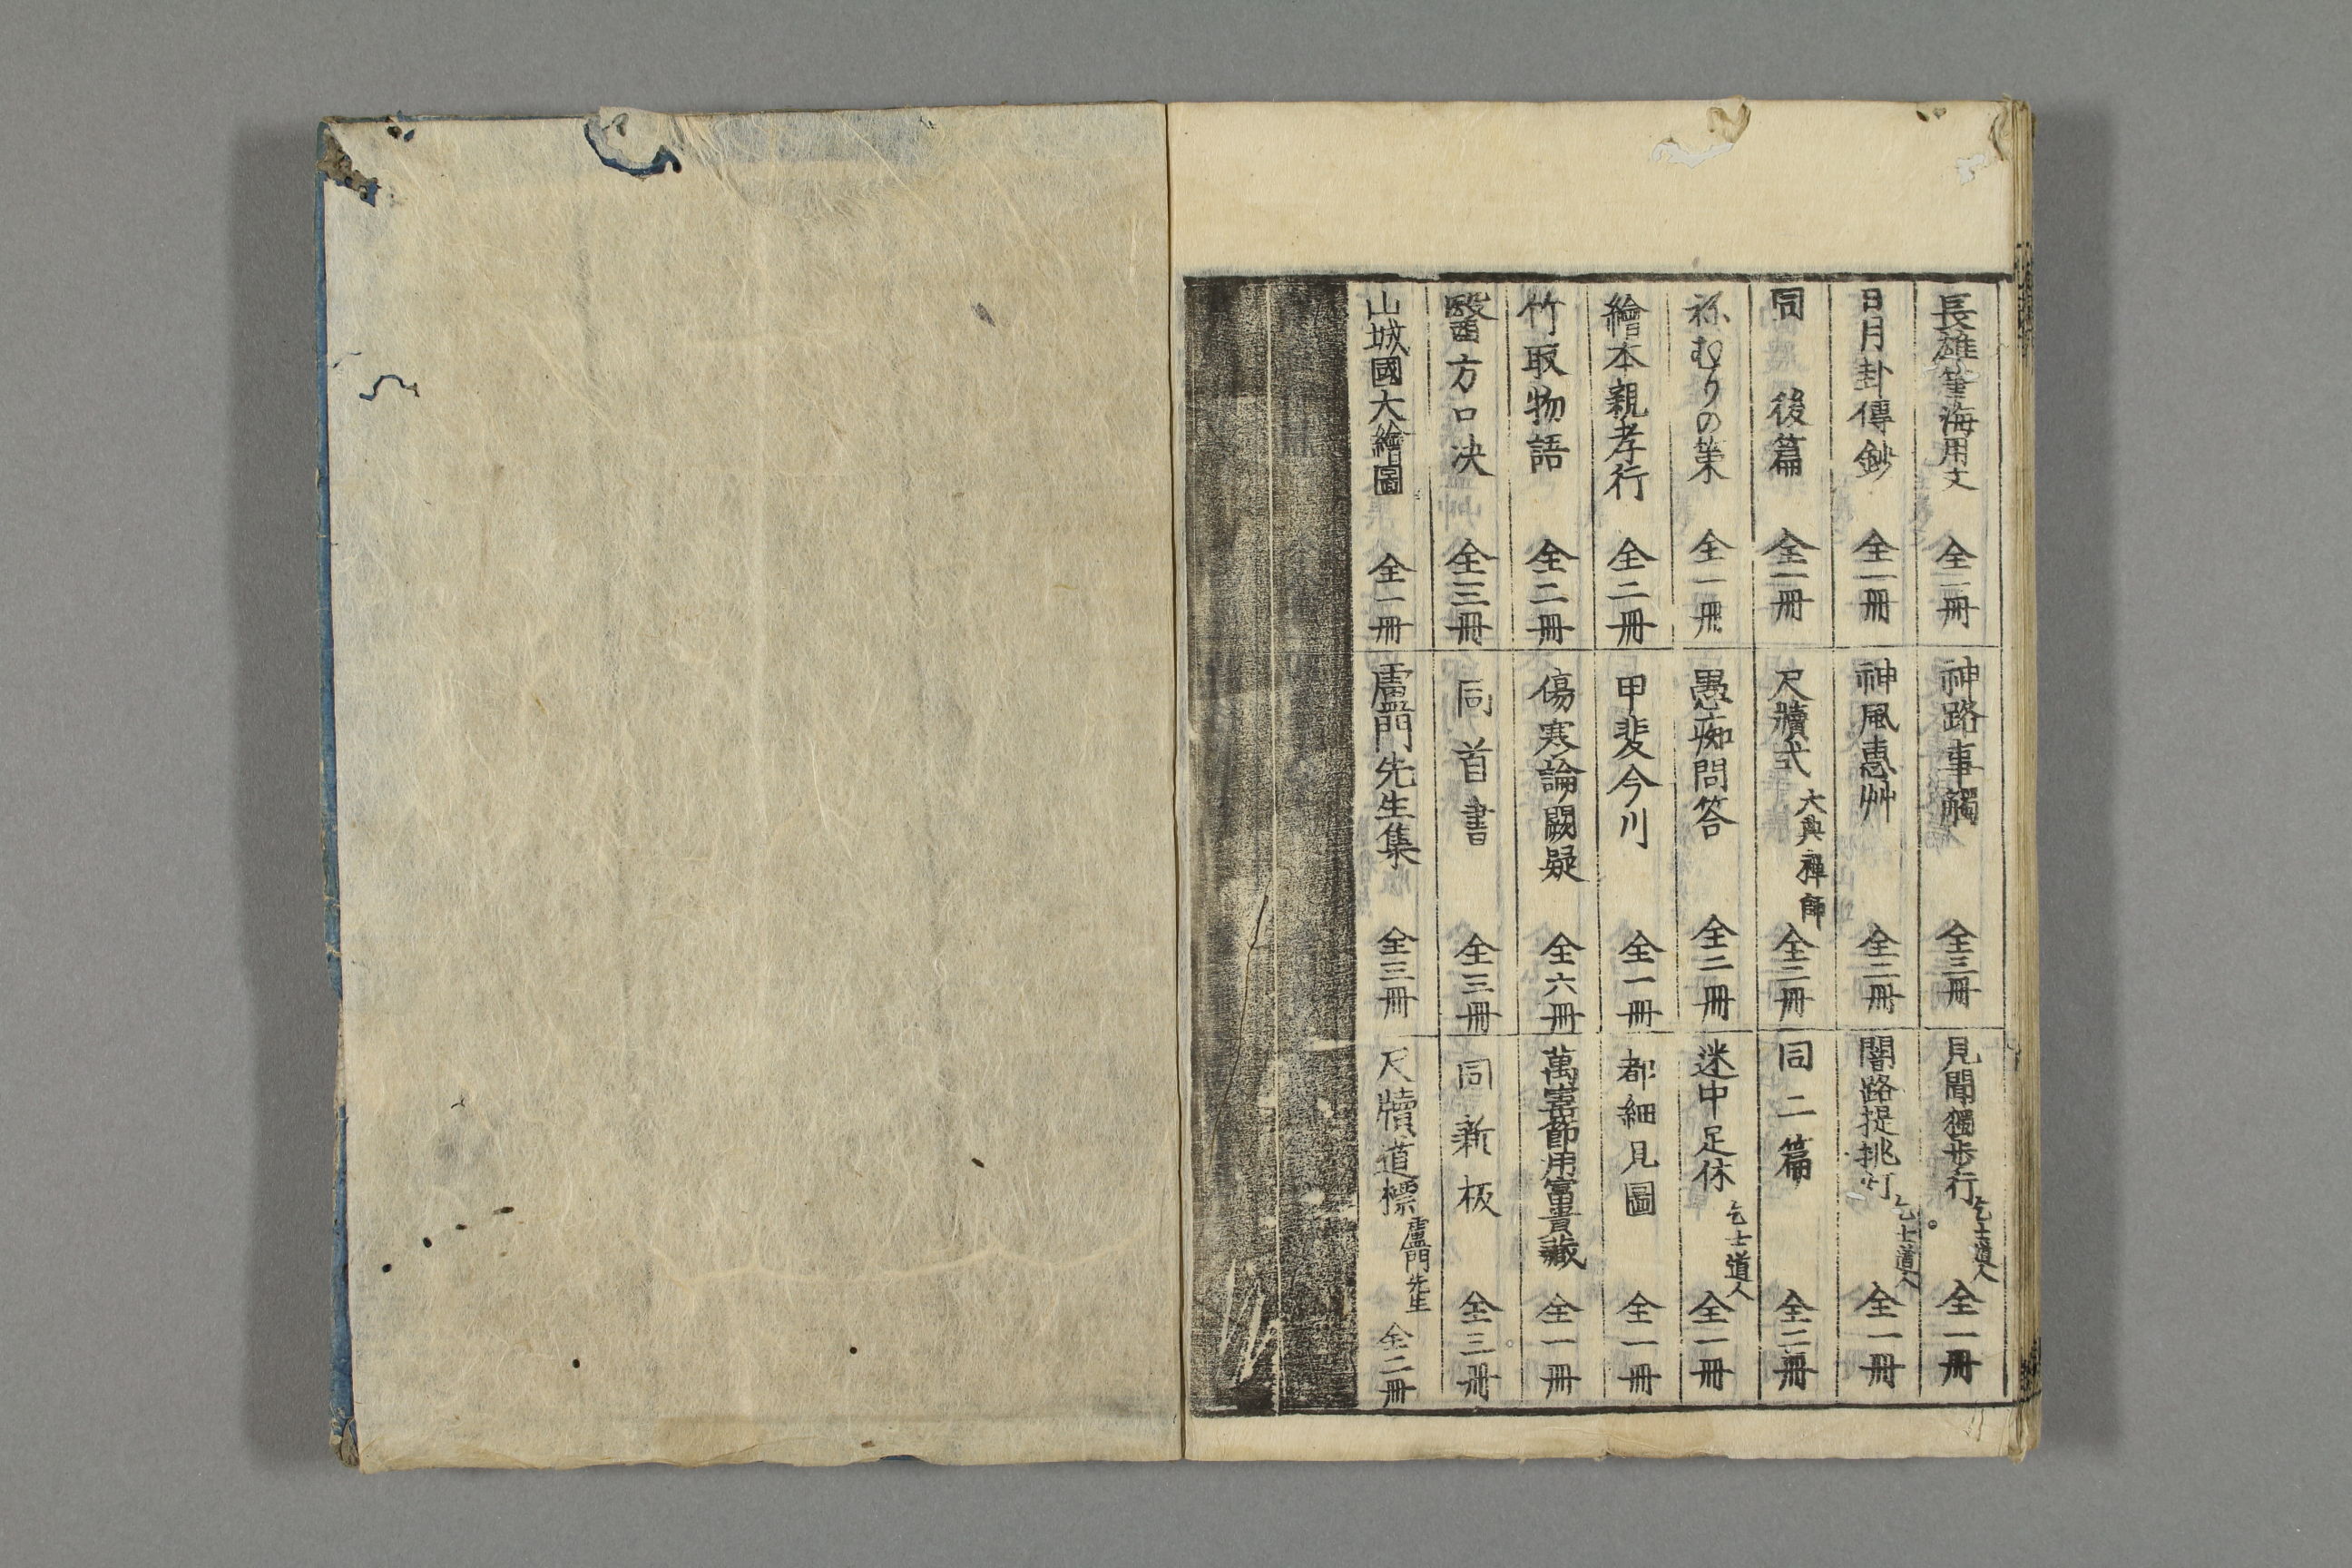 長雄筆海用文 全一冊
日月卦傳鈔 全一冊
同 後篇 全一冊
祢むりの菓 全一冊
繪本親孝行 全二冊
竹取物語 全二冊
醫方口决 全三冊
山城國大繪圖 全一冊
神路事觸 全三冊
神風恵艸 全二冊
尺牘式 大典禅師 全二冊
愚痴問答 全二冊
甲斐今川 全一冊
傷寒論闕疑 全六冊
同首書 全三冊
盧門先生集 全三冊
見聞獨歩行 乞士道人 全一冊
闇路提挑灯 乞士道人 全一冊
同二篇 全二冊
迷中足休 乞士道人 全一冊
都細見圖 全一冊
萬寳節用富貴藏 全一冊
同新板 全三冊
尺牘道標 盧門先生 全二冊